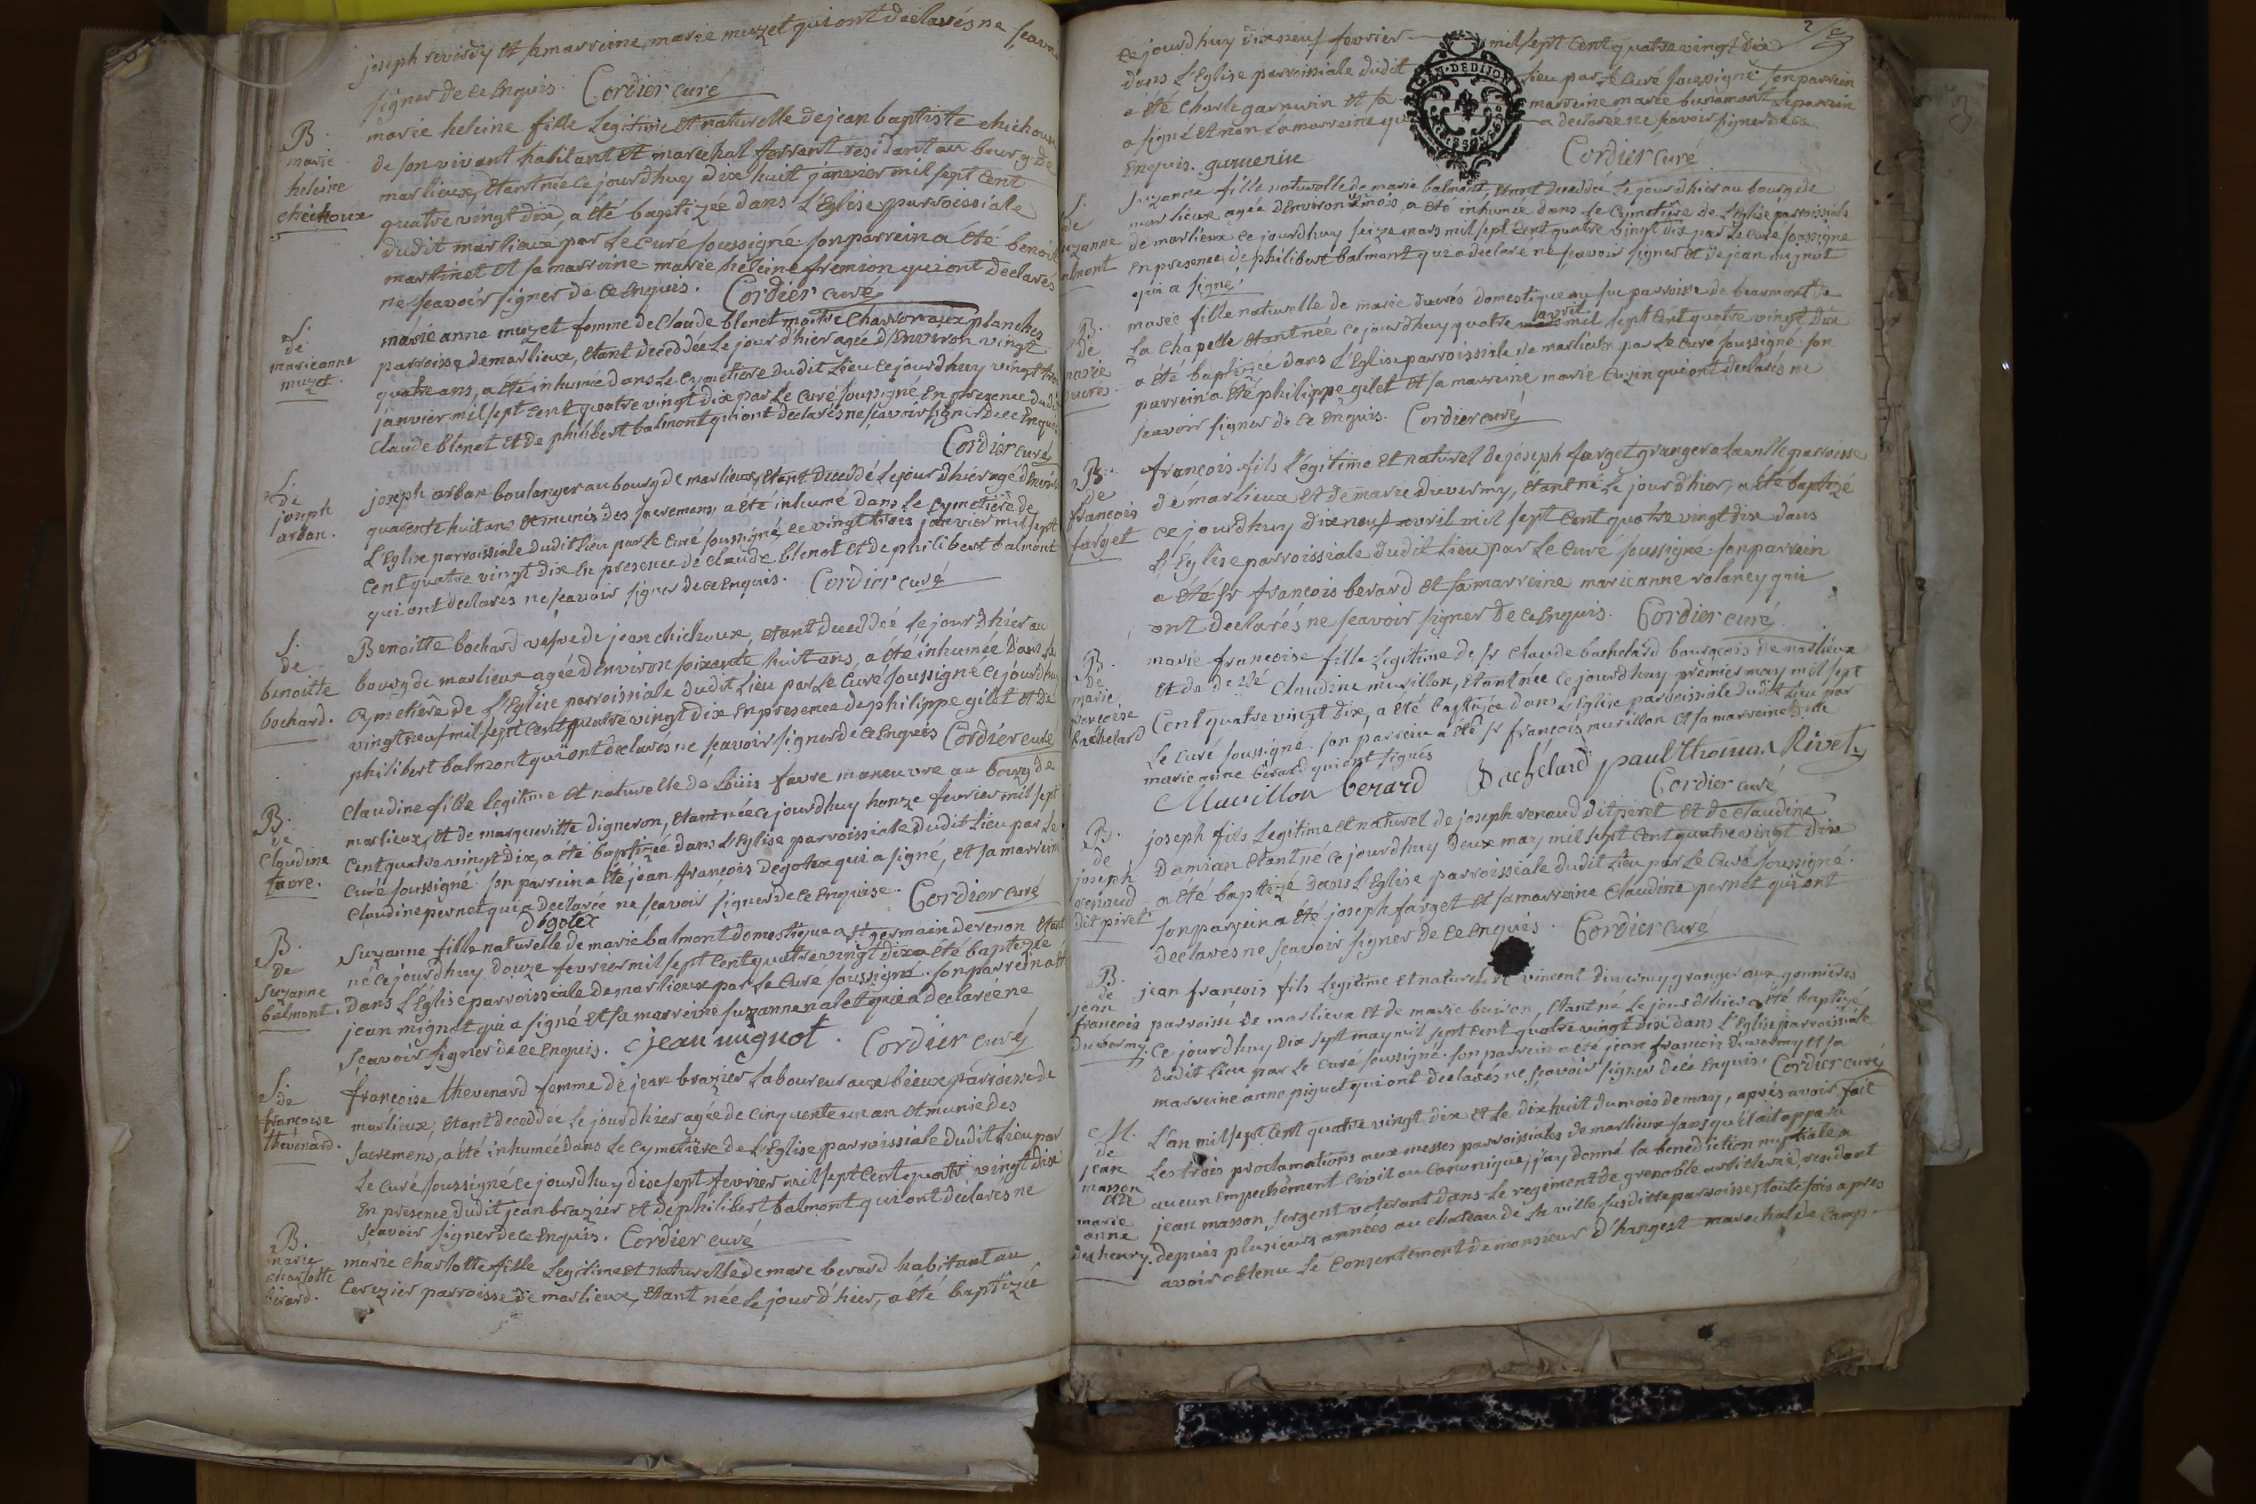 joseph revirdy et sa marreine marie muzet qui ont declarés ne sçavoir
signer de ce Enquis. Cordier curé
B.
marie
heleine
chichoux
marie heleine fille Legitime et naturelle de jean baptiste chichoux
de son vivant habitant et marechal ferrant residant au bourg de
marlieux, etant née ce jourdhuy dix huit janvier mil sept cent
quatre vingt dix, a été baptizee dans L'Eglise parroissiale
dudit marlieux par le curé soussigné son parrein a été benoit
martinet et sa marreine marie heleine fremion qui ont declarés
ne sçavoir signer de ce enquis. Cordier curé
S.
de
marieanne
muzet.
marie anne muzet femme de Claude blenet maitre charron aux planches
parroisse de marlieux, etant deceddée le jour d'hier agée d'Environ vingt
quatre ans, a été inhumée dans Le Cymetiere dudit Lieu ce jourdhuy vingt trois
janvier mil sept cent quatre vingt dix par Le Curé soussigné En presence dudit
Claude blenet et de philibert balmont qui ont declarés ne sçavoir signer de ce Enquis
Cordier curé
S.
de
joseph
arban.
joseph arban boulanger au bourg de marlieux, etant deceddé Le jour d'hier agé d'Environ
quarente huit ans et munis des sacremens, a été inhumé dans Le Cymetiere de
L'Eglise parroissiale dudit lieu par Le Curé soussigné, ce vingt trois janvier mil sept
Cent quatre vingt dix En presence de claude blenet et de philibert balmont
qui ont declares ne sçavoir signer de ce enquis. Cordier curé
S.
de
benoitte
bochard.
Benoitte bochard vefve de jean chichoux, etant deceddée Le jour d'hier au
bourg de marlieux agée d'environ soixante huit ans, a été inhumée dans Le
Cymetiêre de L'Eglise parroissiale dudit Lieu par Le Curé soussigné ce jourdhuy
vingt neuf mil sept cent quatre vingt dix En presence de philippe gilet et de
philibert balmont qui ont declares ne sçavoir signer de ce Enquis Cordier curé
B.
de
Claudine
favre.
Claudine fille Legitime et naturelle de Loüis favre maneuvre au bourg de
marlieux, et de margueritte digneron, etant née ce jourdhuy honze fevrier mil sept
Cent quatre vingt dix, a été baptizée dans L'Eglise parroissiale dudit Lieu par Le
Curé soussigné. son parrein a été jean françois degotex qui a signé, et sa marreine
Claudine pernet qui a declarée ne sçavoir signer de ce enquise. Cordier curé
Dégotex
B.
de
Suzanne
balmont.
Suzanne fille naturelle de marie balmont domestique a st germain de renon etant
né ce jourdhuy douze fevrier mil sept Cent quatre vingt dix a été baptizée
Dans L'Eglise parroissiale de marlieux par Le Curé soussigné. son parrein a été
jean mignot qui a signé et sa marreine suzanne nalet qui a declarée ne
sçavoir signer de ce enquis. jean mignot. Cordier curé
S.
de
françoise
thevenard.
françoise thevenard femme de jean brazier Laboureur aux bieux parroisse de
marlieux, etant deceddée le jour d'hier agée de cinquente un an et munie des
sacremens, a été inhumée dans Le Cymetiere de L'Eglise parroissiale dudit Lieu par
Le Curé soussigné ce jourdhuy dix sept fevrier mil sept Cent quatre vingt dix
En presence dudit jean brazier et de philibert balmont qui ont declares ne
sçavoir signer de ce Enquis. Cordier curé
B.
marie
charlotte
berard.
marie charlotte fille Legitime et naturelle de marc berard habitant au
Cerizier parroisse de marlieux, etant née Le jour d'hier, a été baptizée
2
ce jourdhuy dix neuf fevrier mil sept Cent quatre vingt dix
dans L'Eglise parroissiale dudit Lieu par Le Curé soussigné son parrein
a été Charle et sa marreine marie le parrein
a signé et non La marreine qui a declarée ne sçavoir signer de ce
GEN. DE DIJON
Enquis. Cordier curé
S.
de
Suzanne
balmont
Suzanne fille naturelle de marie balmont, etant deceddée Le jour d'hier au bourg de
marlieux agée d'Environ un mois, a été inhumée dans Le Cymetiere de L'Eglise parroissiale
de marlieux ce jourdhuy seize mars mil sept Cent quatre vingt dix par Le Curé soussigné
En presence de philibert balmont qui a declaré ne sçavoir signer et de jean mignot
qui a signé
B.
de
marie
ducrés.
marie fille naturelle de marie ducrés domestique parroisse de beaumont de
avril
La Chapelle etant née ce jourdhuy quatre mil sept cent quatre vingt dix
a été baptizée dans L'Eglise parroissiale de marlieux par Le Curé soussigné son
parrein a été philippe gilet et sa marreine marie cuzin qui ont declarés ne
sçavoir signer de ce Enquis. Cordier curé
B.
de
françois
farget
françois fils Légitime et naturel de joseph farget granger a parroisse
de marlieux et de marie duvermy, étant né Le jour d'hier, a été baptizé
ce jourdhuy dix neuf avril mil sept Cent quatre vingt dix dans
L'Eglise parroissiale dudit Lieu par Le Curé soussigné. son parrein
a été sr françois berard et sa marreine marieanne rolancy qui
ont declarés ne sçavoir signer de ce Enquis. Cordier curé
B.
de
marie
françoise
bachelard
marie françoise fille Legitime de sr Claude bachelard bourgeois de marlieux
et de delle Claudine muvillon, etant née ce jourdhuy premier may mil sept
Cent quatre vingt dix, a été baptizée dans L'Eglise parroissiale dudit Lieu par
Le Curé soussigné. son parrein a été sr françois muvillon et sa marreine delle
marie anne berard qui ont signés
Muvillon berard Bachelard paul thomas Rivet
Cordier curé
B.
de
joseph
renaud
dit piret
joseph fils Legitime et naturel de joseph renaud dit peret et de claudine
Damian etant né ce jourdhuy deux may mil sept Cent quatre vingt dix
a été baptizé dans L'Eglise parroissiale dudit Lieu par Le Curé soussigné.
son parrein a été joseph farget et sa marreine claudine pernet qui ont
declares ne sçavoir signer de ce Enquis. Cordier curé
B.
de
jean
françois
duvermy.
jean françois fils Legitime et naturel de vincent duvermy granger aux gonnieres
parroisse de marlieux et de marie buison, etant né Le jour d'hier a été baptizé
Ce jourdhuy dix sept may mil sept Cent quatre vingt dix dans L'Eglise parroissiale
dudit Lieu par Le Curé soussigné. son parrein a été jean francois duvermy et sa
marreine anne piguet qui ont declarés ne sçavoir signer de ce enquis. Cordier curé
M.
de
jean
masson
et
marie
anne
deshenry.
L'an mil sept Cent quatre vingt dix et Le dix huit du mois de may, après avoir fait
Les trois proclamations aux messes parroissiales de marlieux sans qu'il ait apparu
aucun empechement Civil ou Canonique, j'ay donné la benediction nuptiale a
jean masson, sergent veterant dans Le regiment de grenoble artillerie, residant
depuis plusieurs années au chateau de La ville susditte parroisse, toute fois apres
avoir obtenu Le Consentement de monsieur d'hangest marechal de Camp.